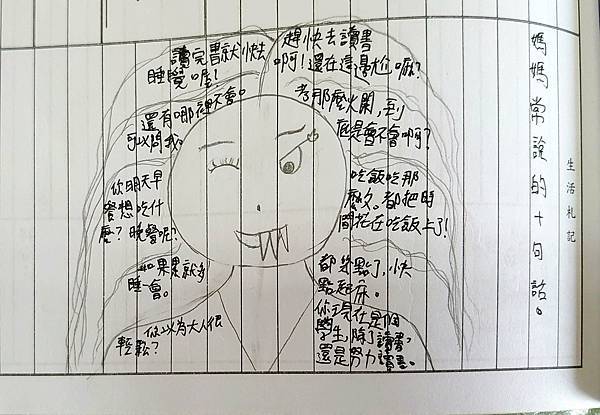 生活札記
媽媽常說的十句話。
趕快去讀書
啊!還在這邊 嘛?
考那麼 ,到
底是會不會啊?
吃飯吃那
麼久。都把時
間花在吃飯上了!
都幾點了,快
點起床。
你現在是個
學生,除了讀書,
還是努力讀書。
讀完書就快去
睡覺喔!
還有哪裡不會。
可以問我。
你明天早
餐想吃什
麼?晚餐呢?
如果累就多
睡一會。
你以為大人很
輕鬆?